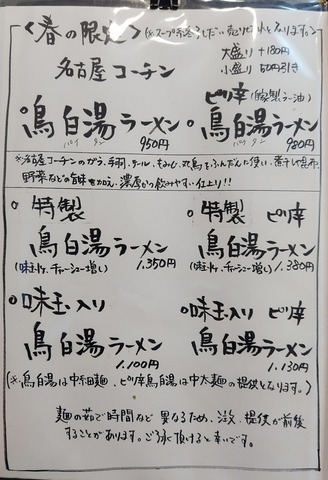 〈春の限定〉(※スープ終了しだい売り切れとなります。)
名古屋コーチン
大盛り +180円
小盛り 50円引き
鳥白湯ラーメン
パイ タン
950円
ピリ辛(特製ラー油)
鳥白湯ラーメン
パイ タン
980円
※名古屋コーチンのガラ、手羽、テール、もみじ、丸鳥をふんだんに使い、煮干し、昆布、
野菜などの旨味を加え、濃厚かつ飲みやすい仕上り!!
特製
鳥白湯ラーメン
(味玉付、チャーシュー増し) 1,350円
特製 ピリ辛
鳥白湯ラーメン
(味玉付、チャーシュー増し) 1,380円
味玉入り
鳥白湯ラーメン
1,100円
味玉入り ピリ辛
鳥白湯ラーメン
1,130円
(※鳥白湯は中細麺、ピリ辛鳥白湯は中太麺の提供となります。)
麺の茹で時間など異なるため、注文、提供が前後
することがあります。ご了承頂けると幸いです。